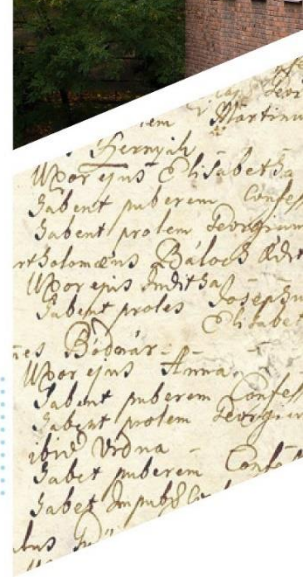 Martinu
Hernyák
Uxor ejus Elisabetha
Habent puberem Confess
Habent prolem Georgium
rtholomæus Báloch
Uxor ejus Juditha
Habent proles Josephu
Elisabet
Bódnár
Uxor ejus Anna
Habent puberem Confess
Habent prolem Georgiu
ibid Vrdna
Habet puberem Conf
Habet Impub